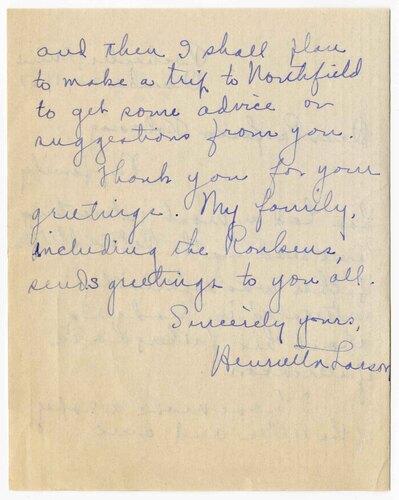 and then I shall plan
to make a trip to Northfield
to get some advice or
suggestions from you.
Thank you for your
greetings. My family,
including the Ronkens,
sends greetings to you all.
Sincerely yours,
Henrietta Larson